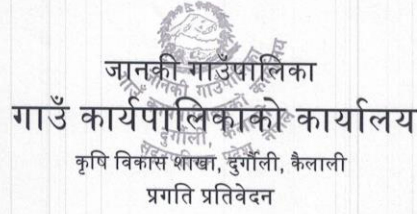 जानकी गाउँपालिका
गाउँ कार्यपालिकाको कार्यालय
कृषि विकास शाखा, दुर्गौली, कैलाली
प्रगति प्रतिवेदन